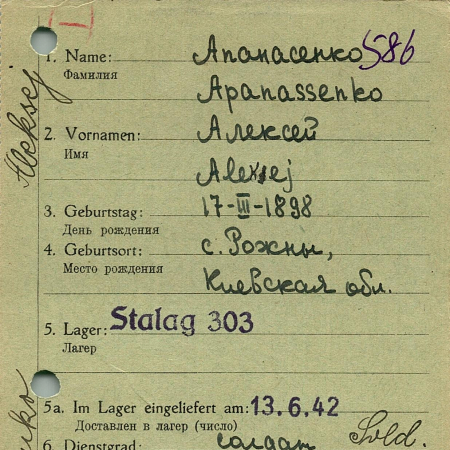 1. Name: Апанасенко 586
Фамилия
Apanassenko
2. Vornamen: Алексей
Имя
Aleksej
3. Geburtstag: 17-III-1898
День рождения
4. Geburtsort: с. Рожны,
Место рождения
Киевская обл.
5. Lager: Stalag 303
Лагер
5a. Im Lager eingeliefert am: 13.6.42
Доставлен в лагер (число)
6. Dienstgrad: солдат Sold.
Aleksej